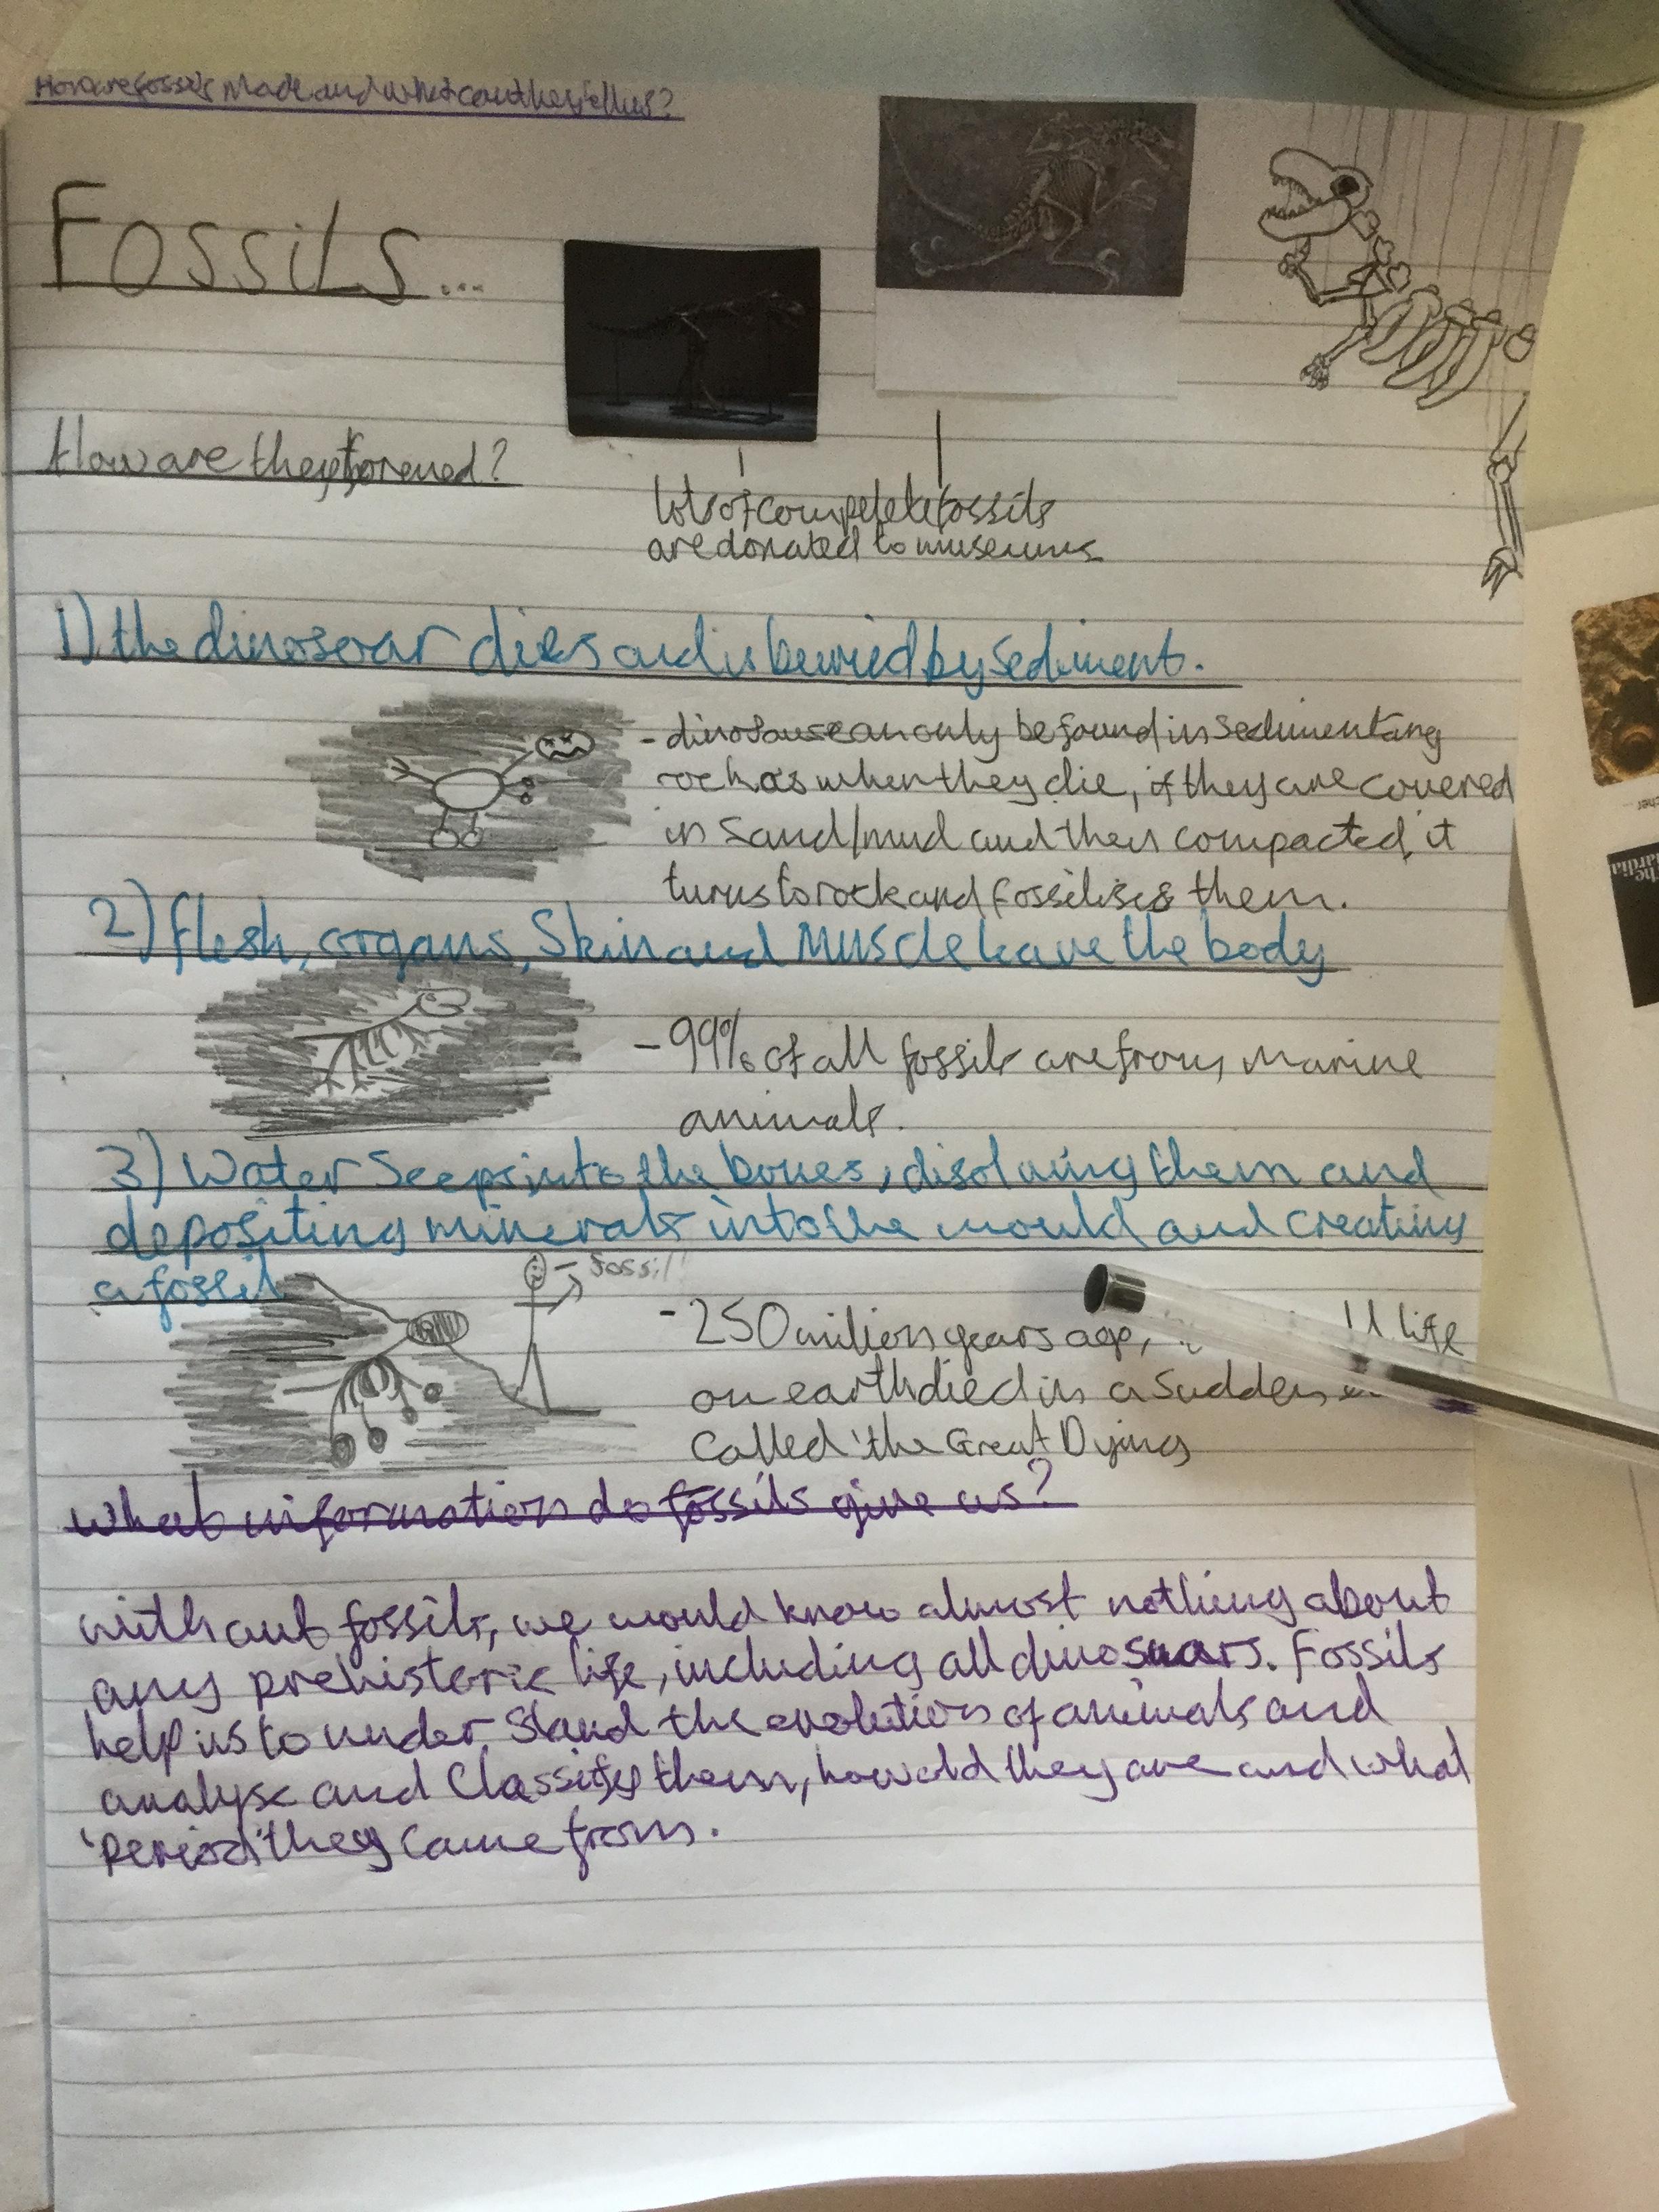 How are fossils made and what can they tell us?
FOSSiLS...
How are they formed?
lots of compelete fossils
are donated to museums
1) the dinosoar dies and is burried by sediment.
- dinosaurs can only be found in sedimentary
rock as when they die, if they are covered
in sand/mud and then compacted, it
turns to rock and fossilises them.
2) flesh, organs, skin and muscle leave the body
- 99% of all fossils are from marine
animals.
3) Water seeps into the bones, disolving them and
depositing minerals into the mould and creating
a fossil
- fossil!
- 250 million years ago, ll life
on earth died in a sudden
called 'the Great Dying
what information do fossils give us?
without fossils, we would know almost nothing about
any prehistoric life, including all dinosaurs. Fossils
help us to under stand the evolution of animals and
analyse and classify them, how old they are and what
'period' they came from.
The
uardia